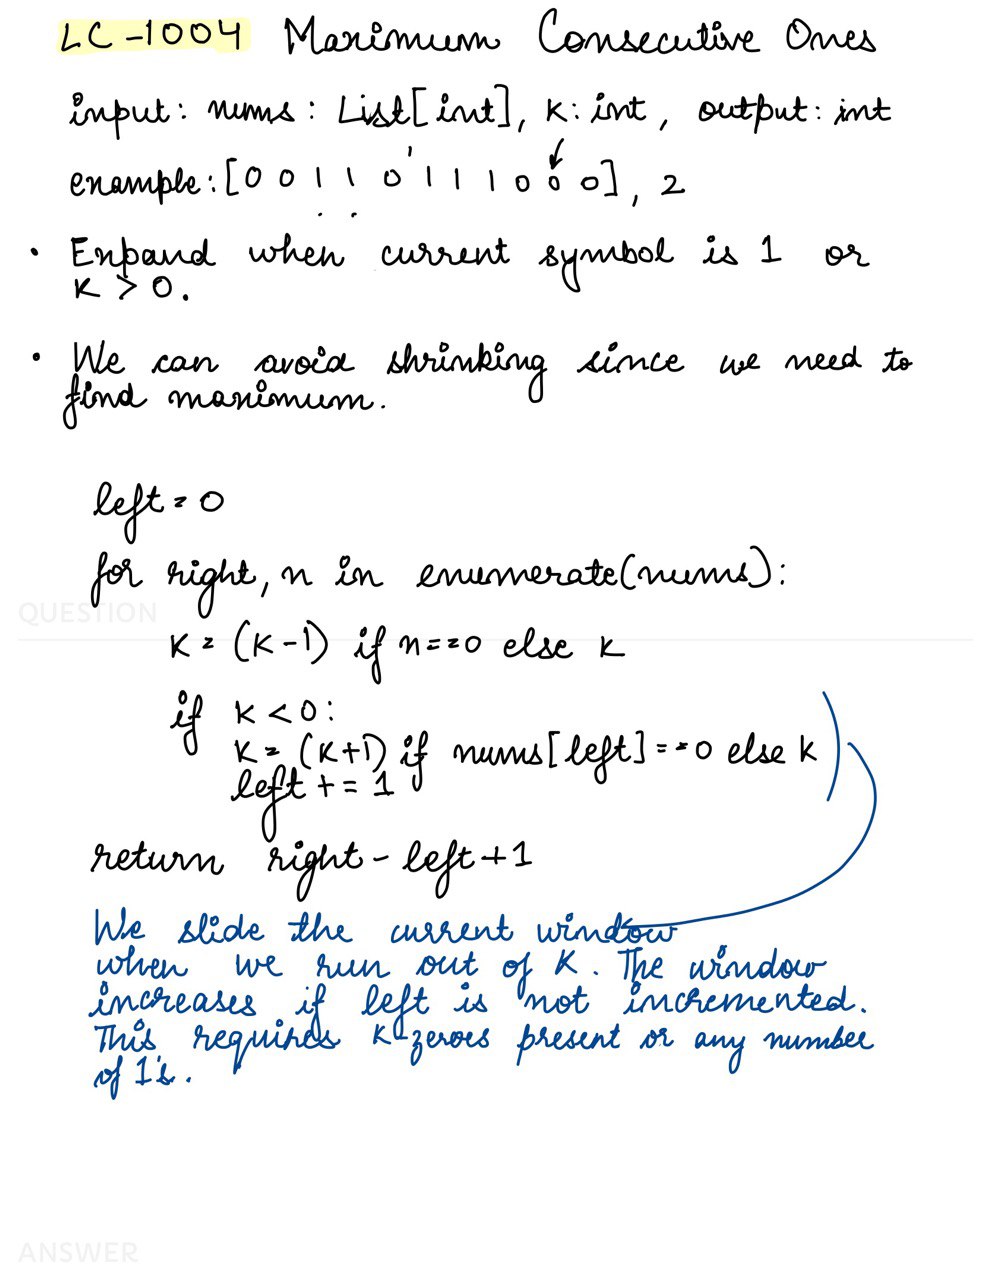 LC-1004 Maximum Consecutive Ones
input: nums: List[int], K: int, output: int
example: [0 0 1 1 0 1 1 1 0 0 0], 2
• Expand when current symbol is 1 or
K > 0.
• We can avoid shrinking since we need to
find maximum.
left = 0
for right, n in enumerate(nums):
QUESTION
K = (K-1) if n==0 else K
if K < 0:
K = (K+1) if nums[left]==0 else K
left += 1
return right - left + 1
We slide the current window
when we run out of K. The window
increases if left is not incremented.
This requires K zeroes present or any number
of 1's.
ANSWER